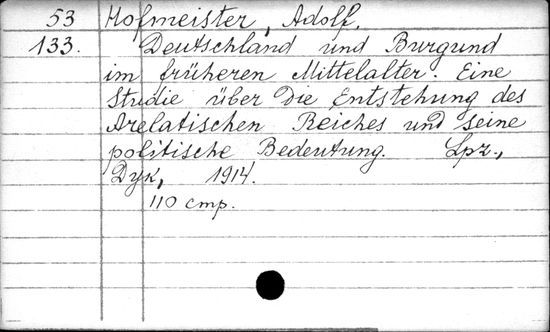 53 Hofmeister, Adolf.
133. Deutschland und Burgund
im früheren Mittelalter. Eine
Studie über die Entstehung des
Arelatischen Reiches und seine
politische Bedeutung. Lpz.,
Dyk, 1914.
110 cmp.